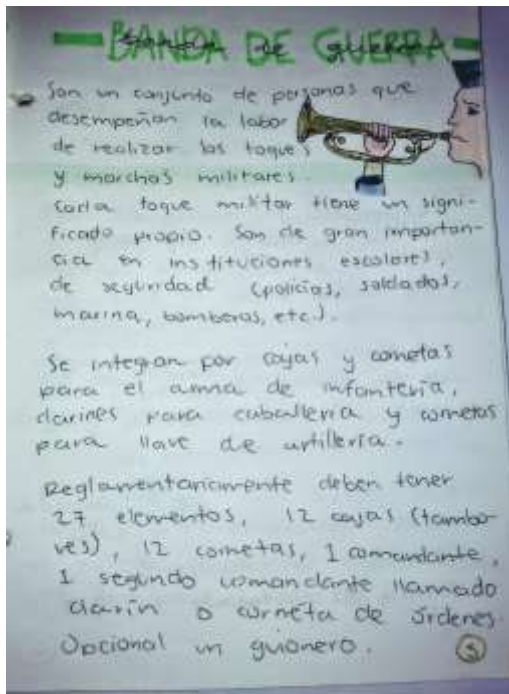 BANDA DE GUERRA
Son un conjunto de personas que
desempeñan la labor
de realizar los toques
y marchas militares.
Cada toque militar tiene un signi-
ficado propio. Son de gran importan-
cia en instituciones escolares,
de seguridad (policías, soldados,
marina, bomberos, etc.).
Se integran por cajas y cornetas
para el arma de infantería,
clarines para caballería y cornetas
para llave de artillería.
Reglamentariamente deben tener
27 elementos, 12 cajas (tambo
res), 12 cornetas, 1 comandante,
1 segundo comandante llamado
clarín o corneta de órdenes.
Opcional un guionero.